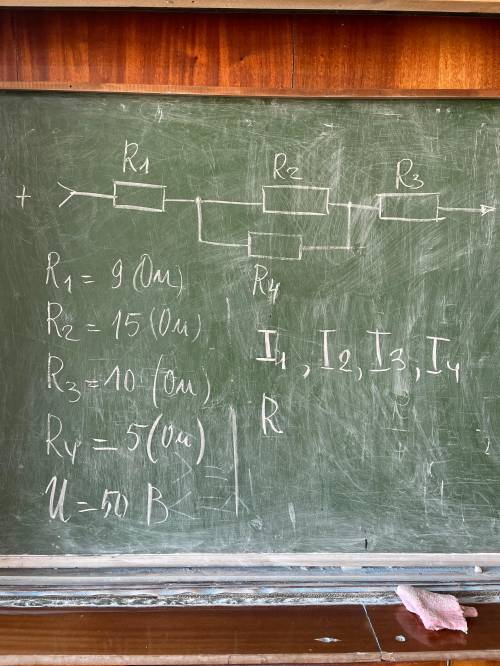 R1 R2 R3
+
R4
R1 = 9 (Ом)
R2 = 15 (Ом)
R3 = 10 (Ом)
R4 = 5 (Ом)
U = 50 В
I1, I2, I3, I4
R